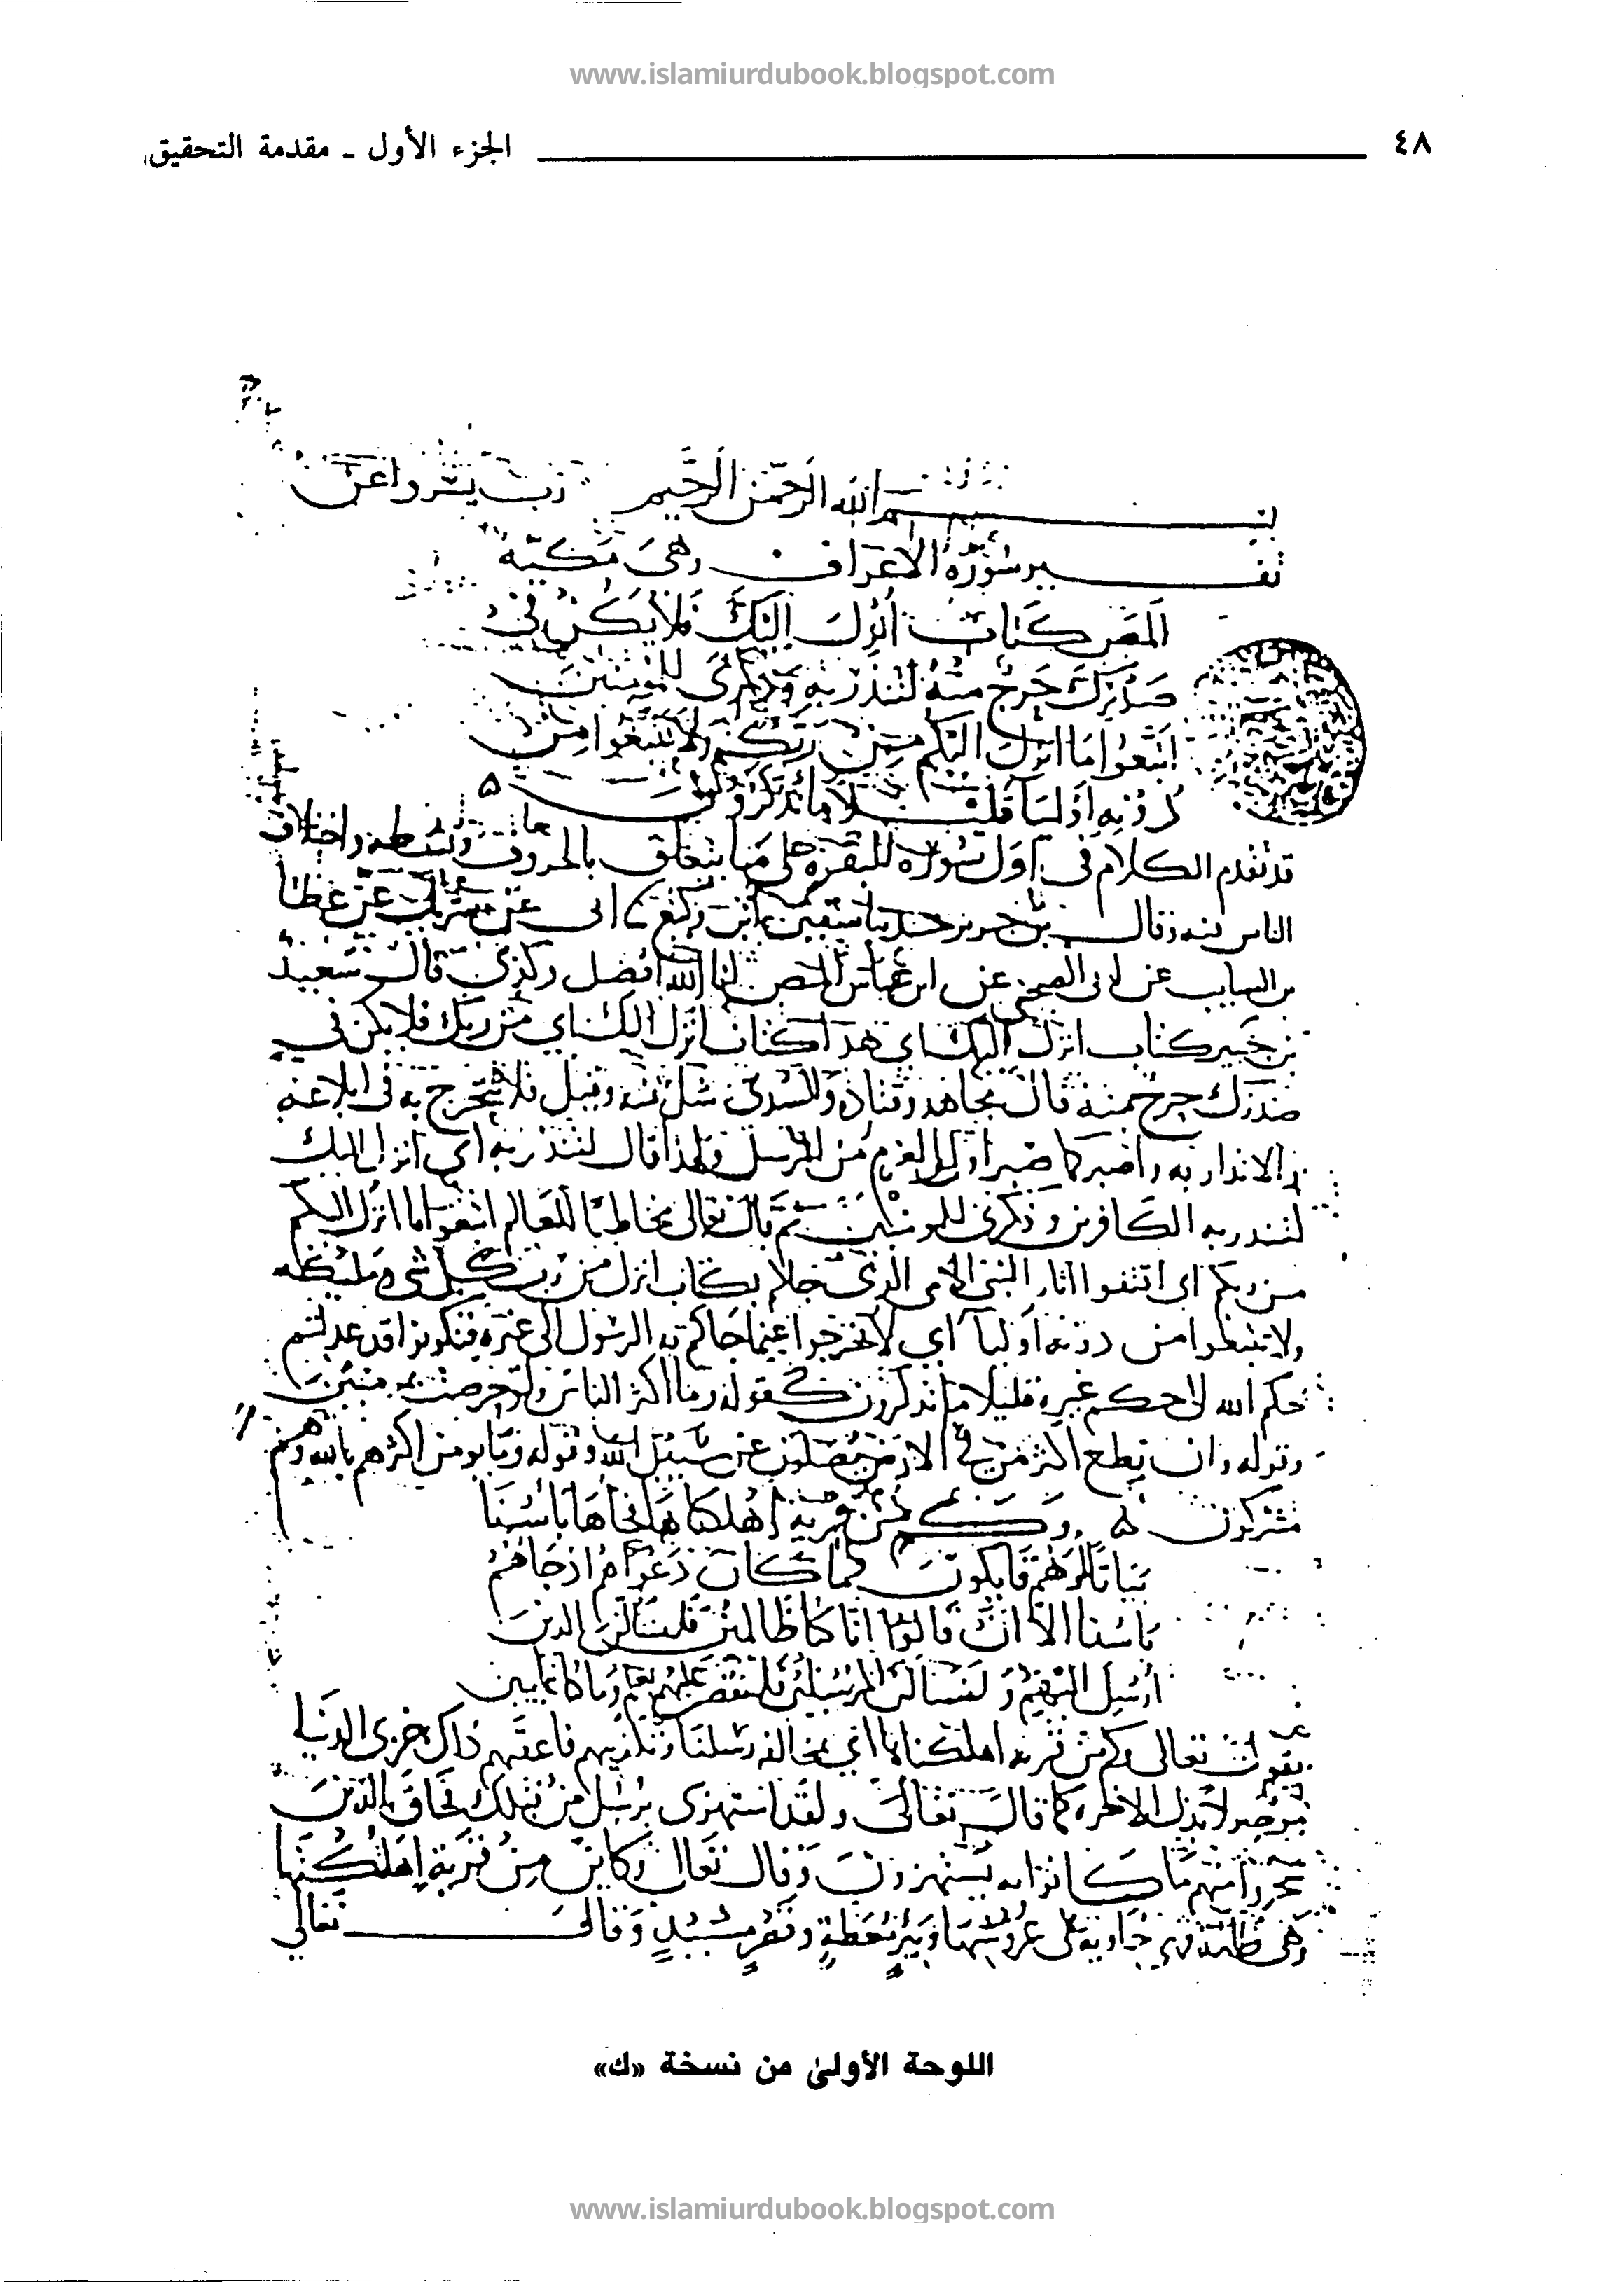 www.islamiurdubook.blogspot.com
٤٨ الجزء الأول ـ مقدمة التحقيق
بسم الله الرحمن الرحيم رب يسر واعن
تفسير سورة الاعراف وهي مكية
المص كتاب انزل اليك فلا يكن في
صدرك حرج منه لتنذر به وذكرى للمومنين
اتبعوا ما انزل اليكم من ربكم ولا تتبعوا من
دونه اوليا قليلا ما تذكرون
قد تقدم الكلام في اول سورة البقرة على ما يتعلق بالحروف وبسطه واختلاف
الناس فيه وقال بن جرير حدثنا سفين بن وكيع ابى عن شريك عن عطا
بن السايب عن ابى الضحى عن ابن عباس المص انا الله افضل وكذى قال سعيد
بن جبير كتاب انزل اليك اي هذا كتاب انزل اليك اي من ربك فلا يكن في
صدرك حرج منه قال مجاهد وقتادة والسدى شك منه وقيل فلا تتحرج به فى ابلاغه
والانذار به واصبر كما صبر اولوا العزم من الرسل ولهذا قال لتنذر به اي انزل اليك
لتنذر به الكافرين وذكرى للمومنين ثم قال تعالى مخاطبا للعالم اتبعوا ما انزل اليكم
من ربكم اى اقتفوا اثار النبى الامى الذى جاكم بكتاب انزل من رب كل شى ومليكه
ولا تتبعوا من دونه اوليا اي لا تخرجوا عما جاكم به الرسول الى غيره فتكونوا قد عدلتم
عن حكم الله الى حكم غيره قليلا ما تذكرون كقوله وما اكثر الناس ولو حرصت بمومنين
وقوله وان تطع اكثر من في الارض يضلوك عن سبيل الله وقوله وما يومن اكثرهم بالله الا وهم
مشركون وكم من قرية اهلكناها فجاها باسنا
بياتا او هم قايلون فما كان دعواهم اذ جاهم
باسنا الا ان قالوا انا كنا ظالمين فلنسالن الذين
ارسل اليهم ولنسالن المرسلين فلنقصن عليهم بعلم وما كنا غايبين
يقول تعالى وكم من قرية اهلكناها اي بمخالفة رسلنا وتكذيبهم فاعقبهم ذلك خزى الدنيا
موصولا بذل الاخرة كما قال تعالى ولقد استهزى برسل من قبلك فحاق بالذين
سخروا منهم ما كانوا به يستهزون وقال تعالى وكاين من قرية اهلكتها
وهي ظالمة فهي خاوية على عروشها وبير معطلة وقصر مشيد وقال تعالى
اللوحة الأولىٰ من نسخة «ك»
www.islamiurdubook.blogspot.com